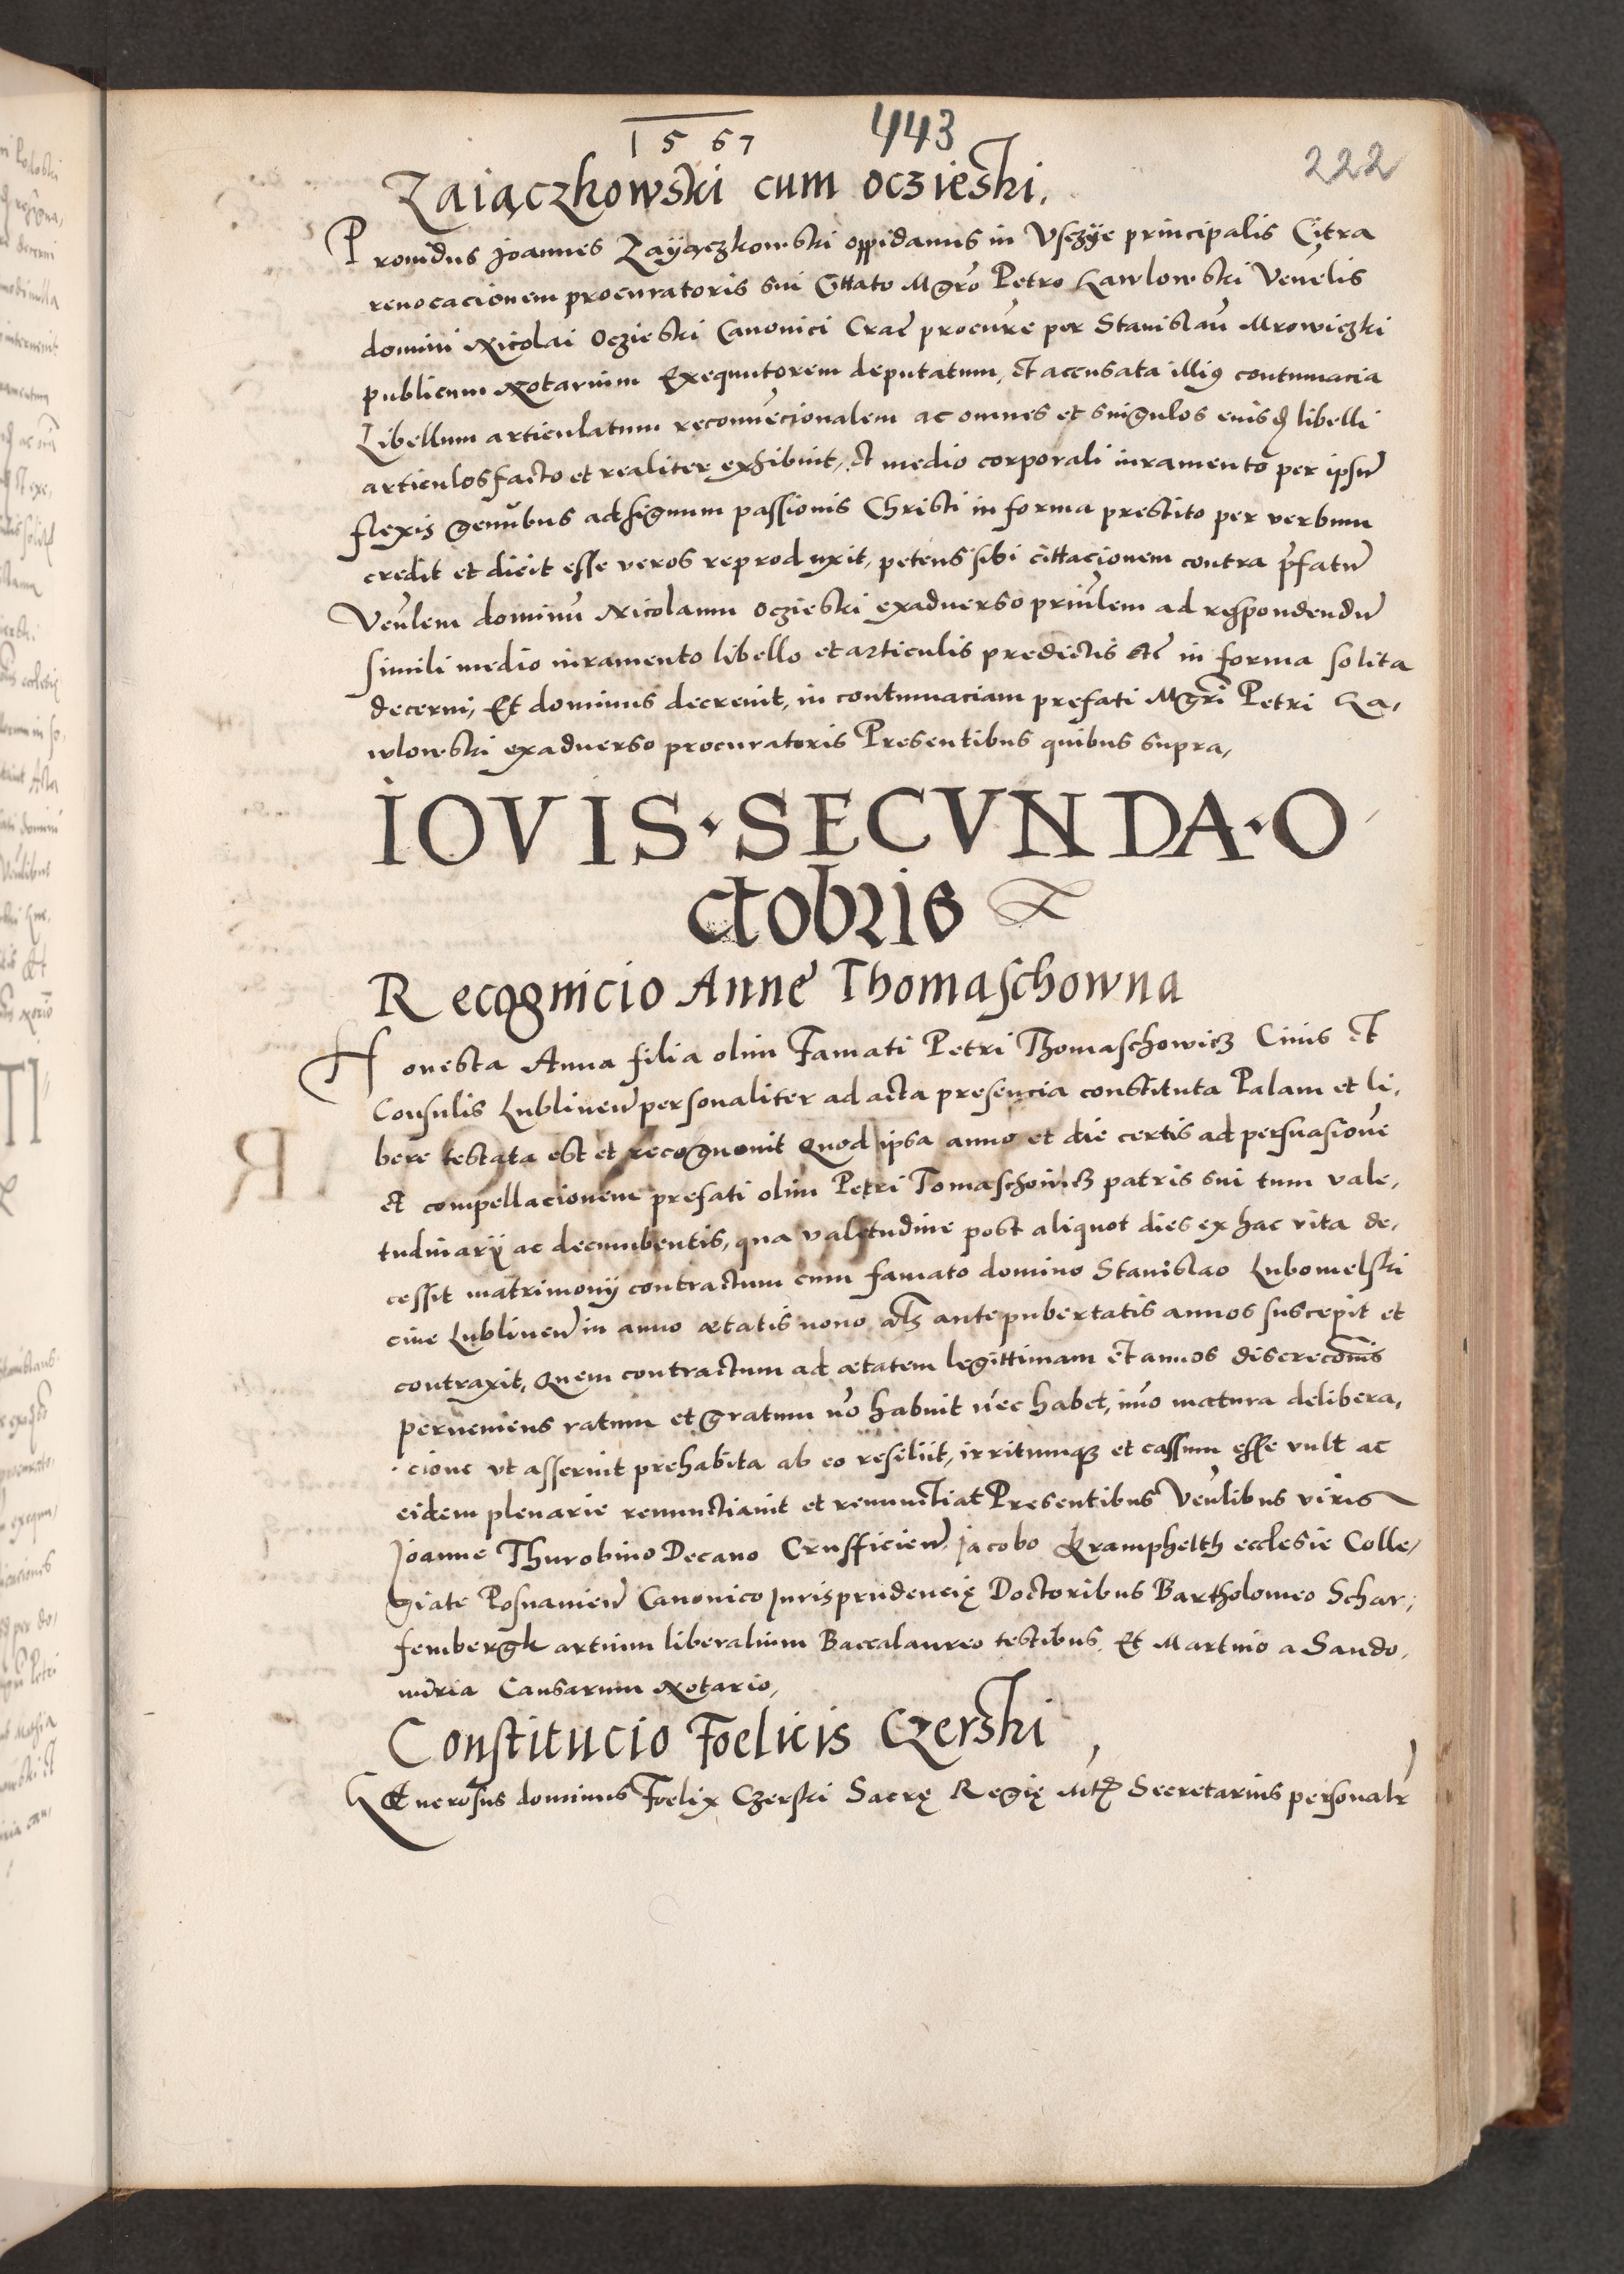 1567 443
222
Zaiączkowski cum oczieski.
Prouidus Joannes Zayączkowski oppidanus in Vsczye principalis Citra
reuocacionem procuratoris sui Cittato Mgrõ Petro Kawlowski Venẽlis
domini Nicolai Oczieski Canonici Crac̃ procurẽ per Stanislaũ Mrowiczki
publicum Notarium Exequutorem deputatum, et accusata illiꝯ contumacia
Libellum articulatum reconuẽcionalem ac omnes et singulos eiusꝺ libelli
articulos facto et realiter exhibuit, et medio corporali iuramento per ipsũ
flexis genubus ad signum passionis Christi in forma prestito per verbum
credit et dicit esse veros reproduxit, petens sibi cittacionem contra p̃fatũ
Venẽlem dominũ Nicolaum Oczieski exaduerso princ̃lem ad respondendũ
simili medio iuramento libello et articulis predictis etc̃ in forma solita
decerni, Et dominus decreuit, in contumaciam prefati Mgrĩ Petri Ka,
wlowski exaduerso procuratoris Presentibus quibus supra,
IOVIS · SECVNDA · O
ctobris
Recognicio Anne Thomaschowna
Honesta Anna filia olim Famati Petri Thomaschowicz Ciuis Et
Consulis Lublineñ personaliter ad acta presencia constituta Palam et li,
bere testata est et recognouit Quod ipsa anno et die certis ad persuasionẽ
et compellacionem prefati olim Petri Tomaschowicz patris sui tum vale,
tudinarÿ ac decumbentis, qua valetudine post aliquot dies ex hac vita de,
cessit matrimonÿ contractum cum famato domino Stanislao Lubomelski
ciue Lublineñ in anno ætatis nono als̃ ante pubertatis annos suscepit et
contraxit, Quem contractum ad ætatem legittimam et annos discrecõnis
perueniens ratum et gratum nõ habuit nec habet, imõ matura delibera,
cione vt asseruit prehabita ab eo resiliit, irritumqꝫ et cassum esse vult ac
eidem plenarie renunctiauit et renunctiat Presentibus Venẽlibus viris
Joanne Thurobino Decano Crusficieñ Jacobo Kramphelth ecclesie Colle,
giate Posnanieñ Canonico Jurisprudencię Doctoribus Bartholomeo Schar,
fembergk artium liberalium Baccalaureo testibus. Et Martino a Sando,
miria Causarum Notario,
Constitucio Foelicis Czerski
Generosus dominus Foelix Czerski Sacrę Regię Mtꝭ Secretarius personalr̃